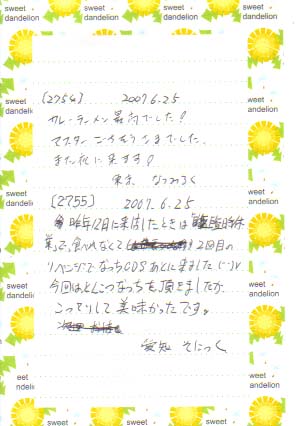 sweet dandelion
sweet dandelion
sweet dandelion
[2754] 2007.6.25
カレーラーメン最高でした!
マスターごちそうさまでした。
また北に来ます!
東京 なつみろく
[2755] 2007.6.25
昨年12月に来店したときは 臨時休
業で、食べれなくて 2回目の
リベンジでなっちCDSあとに来ました
今回はとんこつなっちを頂きましたが
こってりして美味かったです。
愛知 そにっく
sweet dandelion
sweet dandelion
sweet dandelion
sweet dandelion
sweet dandelion
sweet dandelion
sweet
sweet
sweet